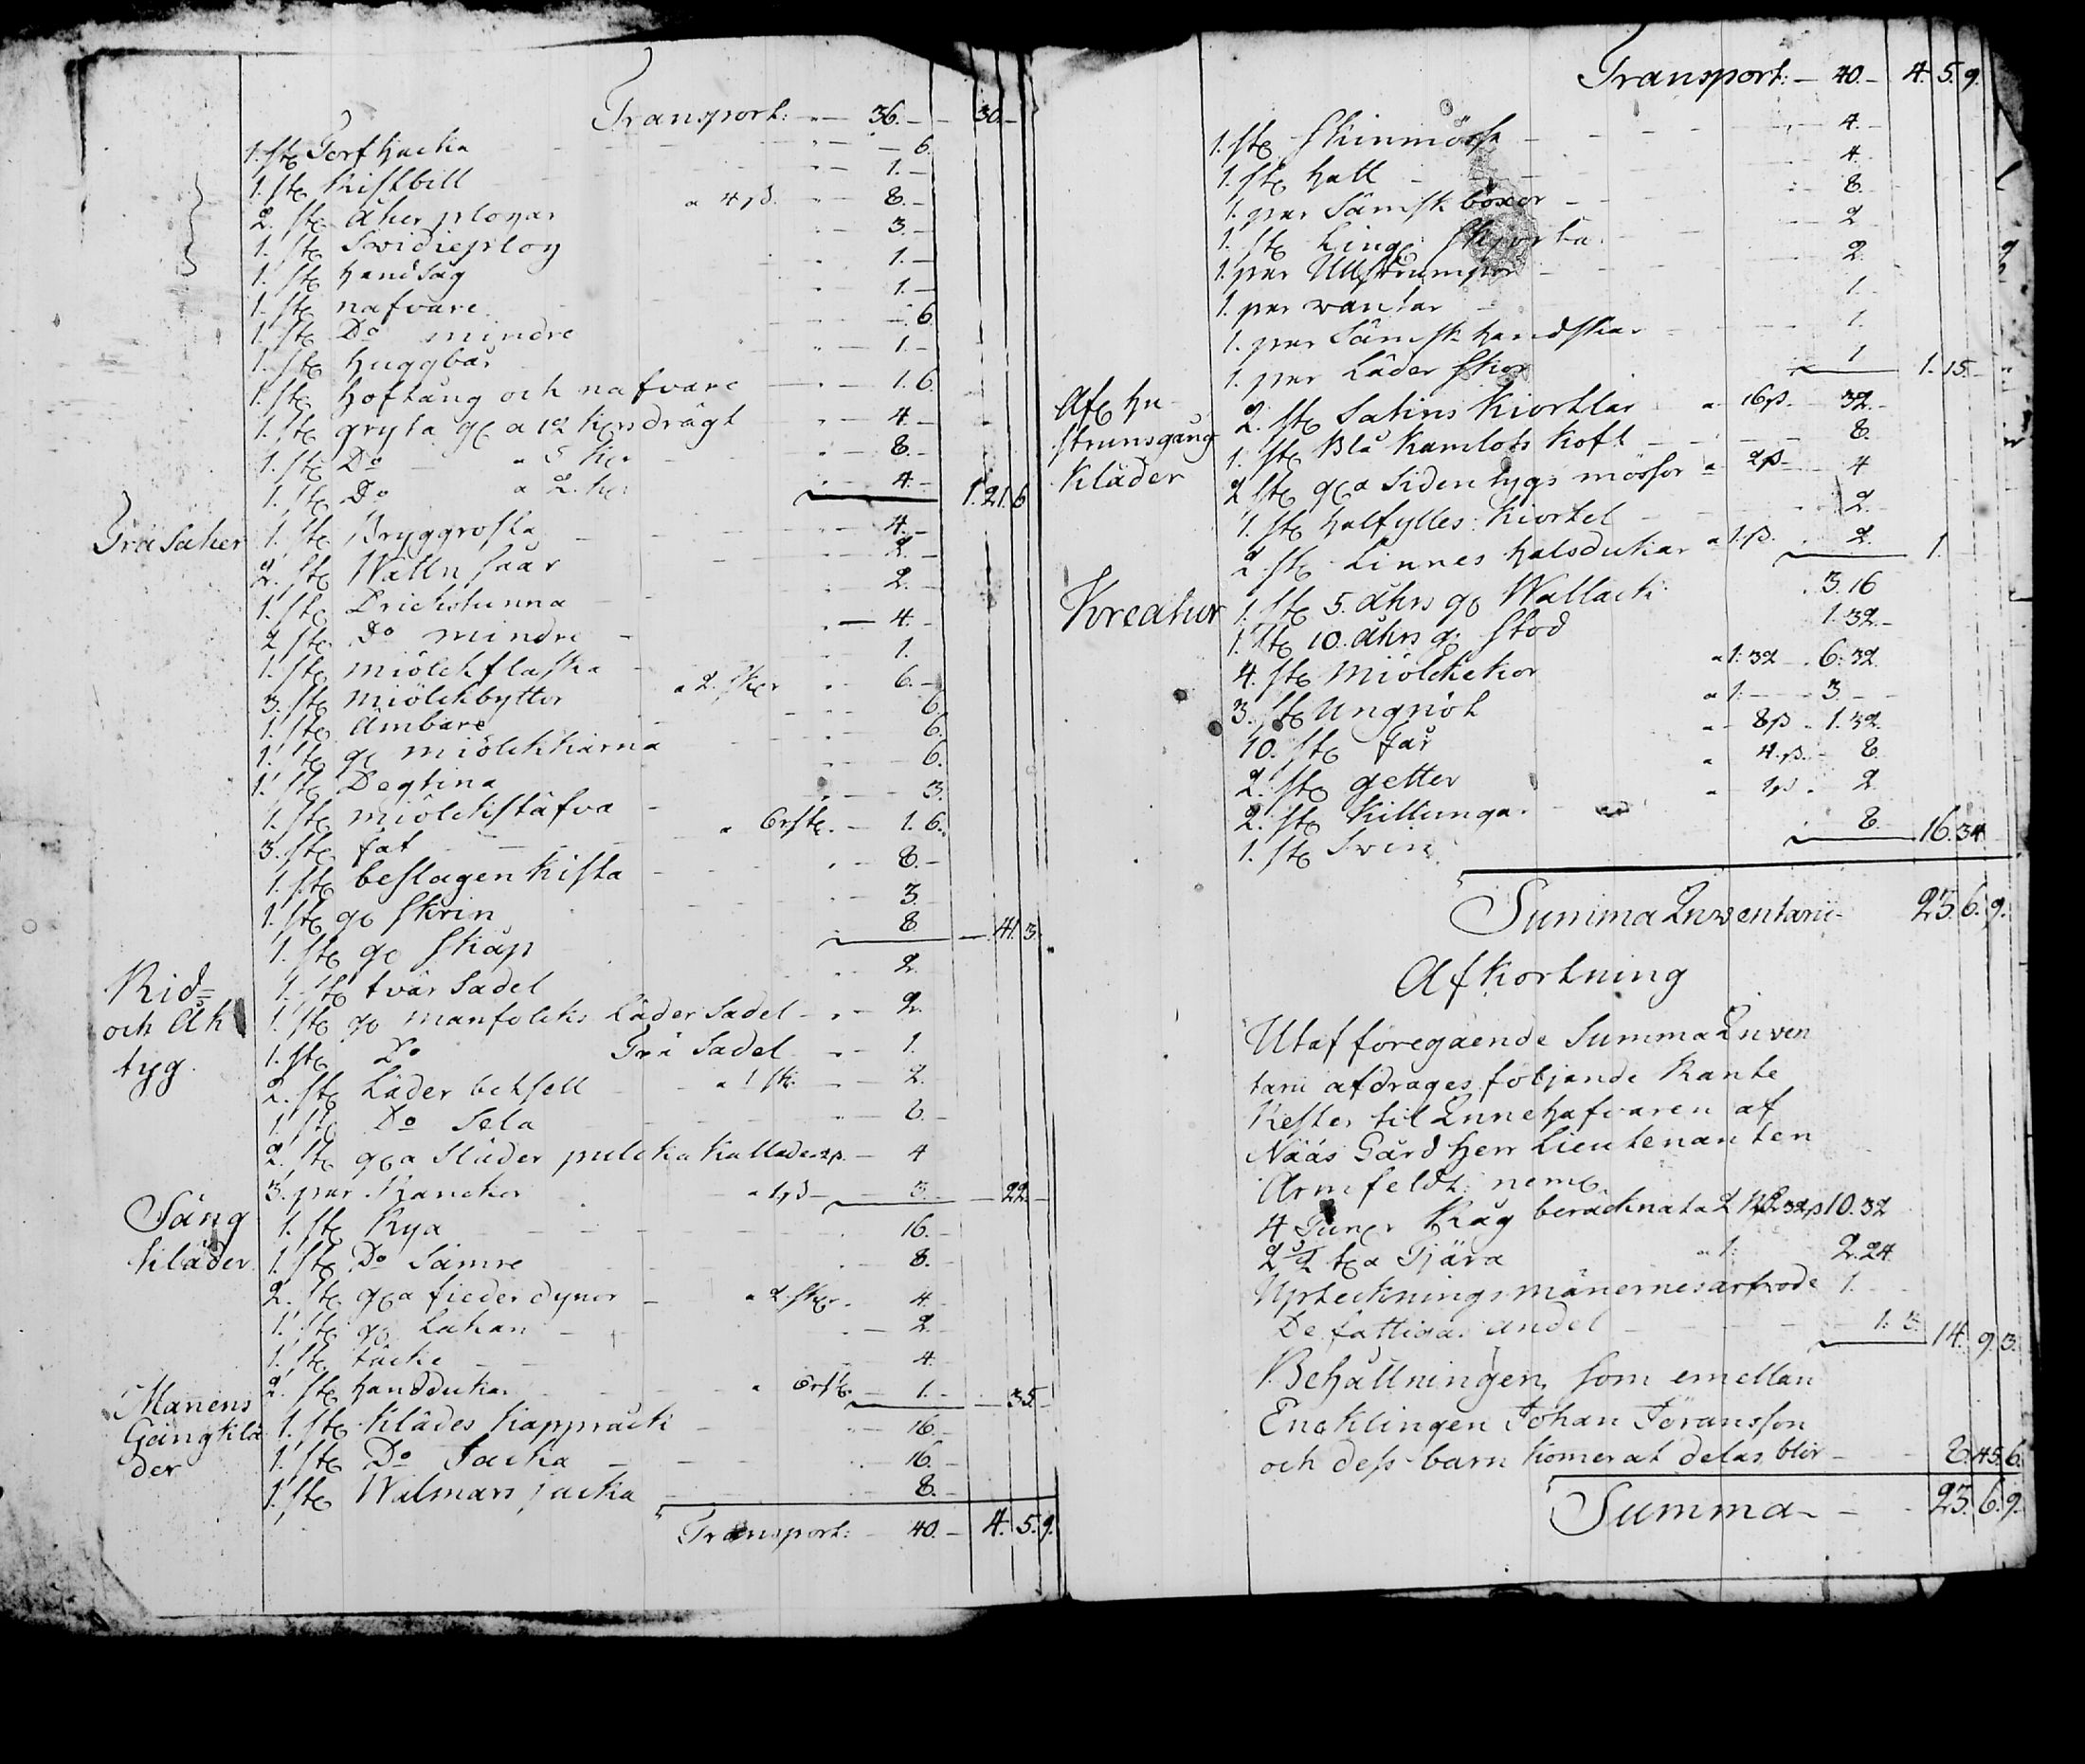 Transport: 36. 30.
1. stc Torf hacka 6.
1. stc Kistbill 1.
2. stc åker plogar a 4 ß. 8.
1. stc Svidieplog 3.
1. stc handsåg 1.
1. stc nafvare 1.
1. stc Do mindre 6.
1. stc huggbår 1.
1. stc hoftång och nafvare 1. 6.
1. stc gryta gl a 12 kr:s drägt 4.
1. stc Do a 5 kr 8.
1. stc Do a 2. kr: 4. 1. 21. 6
Träsaker 1. stc Bryggrosta 4.
2. stc Walln såår 2.
1. stc Drickstunna 2.
2 stc Do mindre 4.
1. stc miölckflaska 1.
3. stc miölckbyttor a 2. sker 6.
1. stc Ämbare 6.
1. stc gl miölckkärna 6.
1. stc Degtina 6.
1. stc miölckstäfva 3.
3. stc fat a 6rstc. 1. 6.
1. stc beslagen kista 8.
1. stc gl skrin 3.
1. stc gl skåp 8 41. 3.
Rid= 1. stc tvär Sadel 2.
och Åk 1. stc gl manfolcks Läder Sadel 2.
tyg. 1. stc Do Trä Sadel 1.
2. stc Läder betsell a 1 sk. 2.
1. stc Do Sela 8.
2. stc gla Släder pulcka kallade a 2ß. 4
3. par Ranckor a 1ß 3. 22.
Säng 1. stc Rya 16.
kläder. 1. stc Do Sämre 8.
2. stc gla fieder dynor a 2 sker. 4.
1. stc gl Lakan 2.
1. stc täcke 4.
Manens 2. stc handdukar a 6rst. 1. 35.
Gångklä 1. stc klädes kappråck 16.
der 1. stc Do Jacka 16.
1. stc Walmars jacka 8.
Transport: 40. 4. 5. 9.
Transport: 40. 4. 5. 9.
1. stc Skinmössa 4.
1. stc hatt 4.
1. par Sämsk böxor 8.
1. stc Ling: Skjorta 2
1. par Ullstrumpor 2.
1. par vantar 1.
1. par Sämsk handskar 1.
1. par Läder Skor 1 1. 15.
Afl hu 2. stc Satins Kiortlar a 16ß. 32.
struns gång 1. stc Blå Kamlots Koft 8.
kläder 2 stc gla Siden tygs mössor a 2ß 4
1. stc halfylles Kiortel 2.
2 stc Linnes halsdukar a 1.ß. 2. 1.
Kreatur 1. stc 5. åhrs gl Wallack 3. 16
1. stc 10. åhrs gl Stod 1. 32.
4. stc Miölckekor a 1: 32 6: 32.
3. stc Ungnöt a 1: 3
10. stc får a 8ß. 1. 32.
2. stc getter a 4.ß. 8.
2. stc killunga. a 1ß. 2
1. stc Svin 8. 16. 34
Summa Inventarii 23. 6. 9.
Afkortning
Utaf föregående Summa Inven
tarii afdrages följande Rante
Rester til Innehafvaren af
Nääs Gård Herr Lieutenanten
Armfeldt neml
4 Tuner Råg beräcknat a 2 Rd 32ß 10. 32
2 1/2 tla Tjära a 1: 2. 24
Upteckningsmänernes arfvode 1.
De fattigas andel 1: 3. 14. 9. 3.
Behållningen, som emellan
Encklingen Johan Jöransson
och dess barn komer at delas, blir 8. 45. 6.
Summa 23. 6. 9.